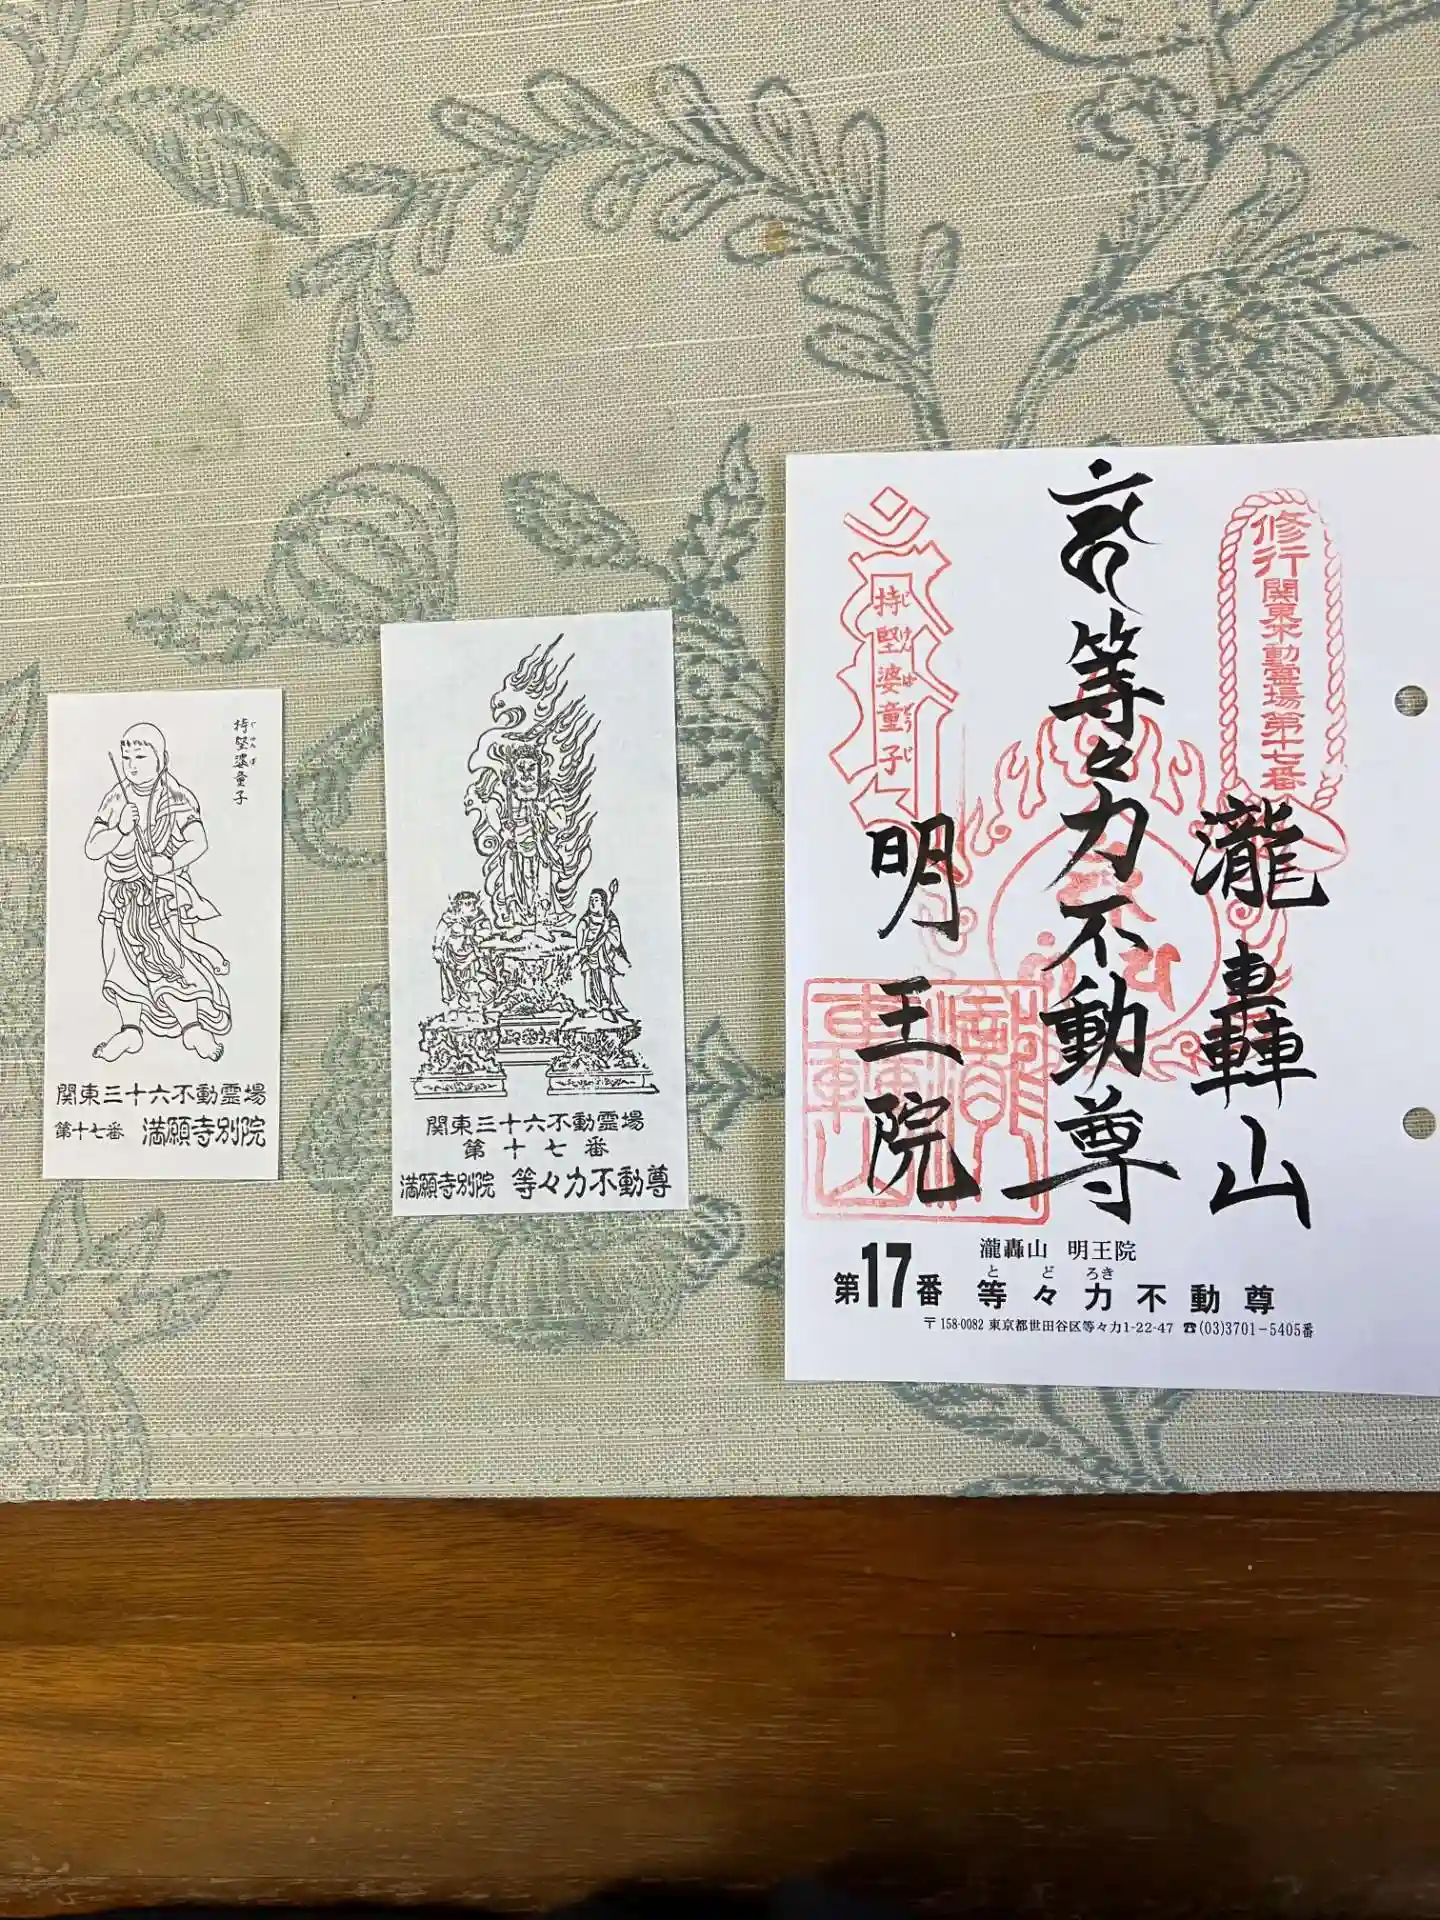 持堅婆童子
じけんば
関東三十六不動霊場
第十七番 満願寺別院
関東三十六不動霊場
第十七番
満願寺別院 等々力不動尊
修行関東不動霊場第十七番
瀧轟山
等々力不動尊
持堅婆童子
じけんばどうじ
明王院
瀧轟山 明王院
とどろき
第17番 等々力不動尊
〒158-0082 東京都世田谷区等々力1-22-47 ☎(03)3701-5405番